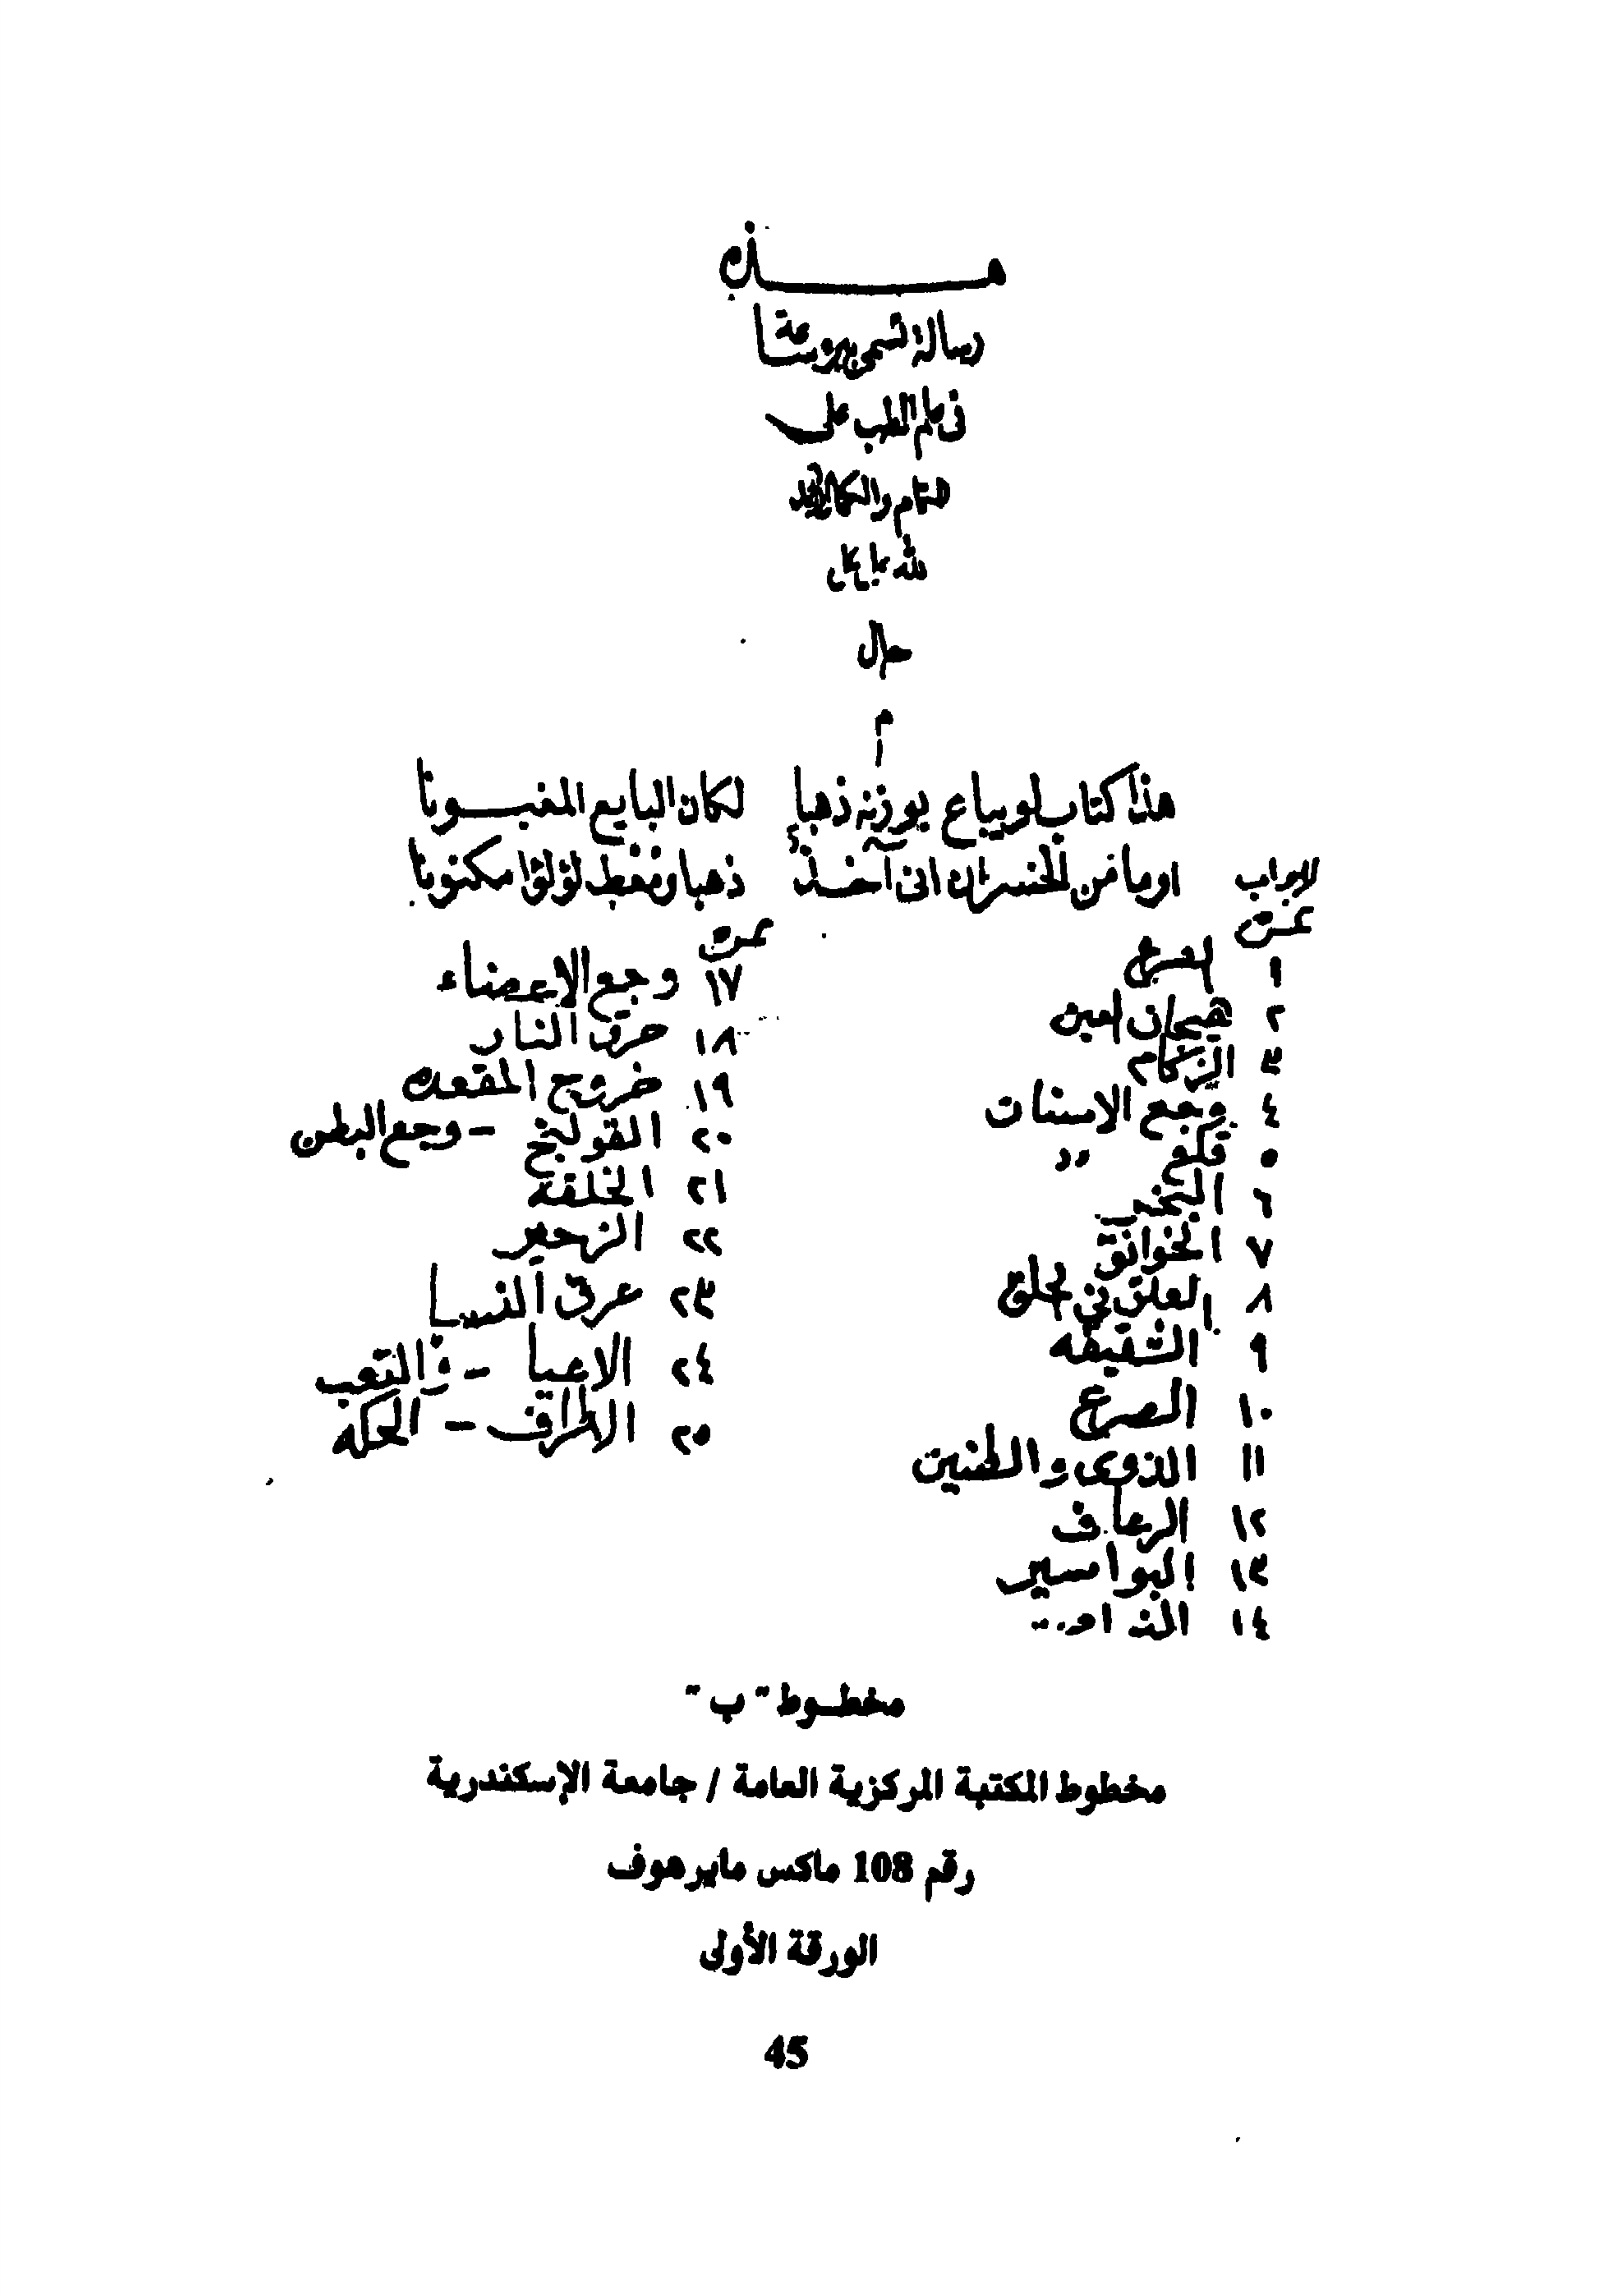 هـــذه
رسالة تسمى بروساعة
فى علم الطب على
التمام والكمال والحمد
لله على كل
حال
م
هذا كتاب لو يباع بوزنه ذهبا لكان البايع المغبـونا
اوما من الخسران انى آخذ ذهبا ومعط لؤلؤا مكنونا
نمرة
١
٢ هيجان العين
٣ الزكام
٤ وجع الاسنان
٥ قلع ״
٦ البخر
٧ الخوانق
٨ العلق في الحلق
٩ الشقيقه
١٠ الصرع
١١ الذوى والطنين
١٢ الرعاف
١٣ البواسير
١٤
نمرة
١٧ وجع الاعضاء
١٨ حرق النار
١٩ خروج المقعده
٢٠ القولنج - وجع البطن
٢١ الخلفة
٢٢ الزحير
٢٣ عرق النسا
٢٤ الاعيا - والتعب
٢٥ الاطراف - الحكه
مخطوط "ب"
مخطوط المكتبة المركزية العامة / جامعة الإسكندرية
رقم 108 ماكس مايرهوف
الورقة الأولى
45